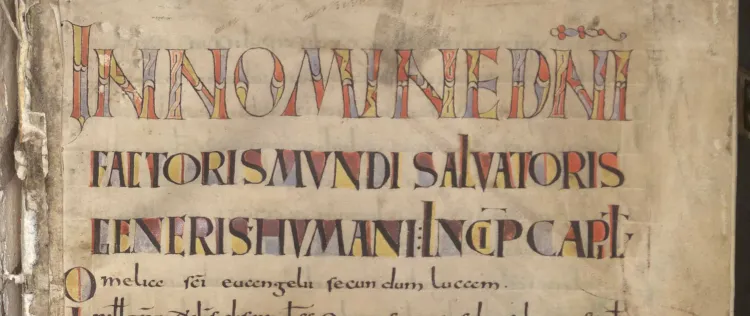 IN NOMINE DNI
FACTORIS MVNDI SALVATORIS
GENERIS HVMANI: INCIP CAPIL
Omelice sci euangelii secundum luccem.